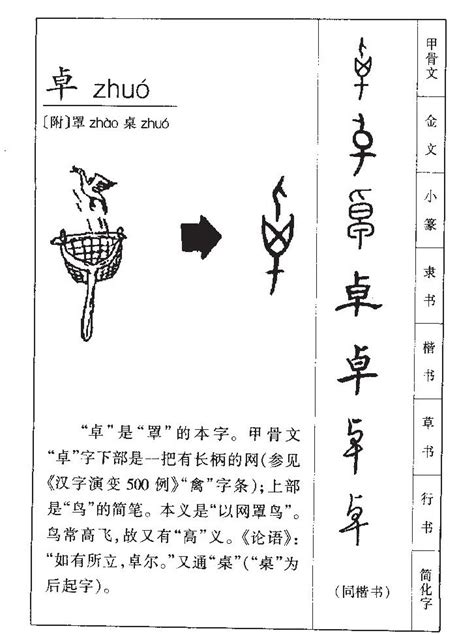 卓 zhuó
〔附〕罩 zhào 桌 zhuó
“卓”是“罩”的本字。甲骨文
“卓”字下部是一把有长柄的网(参见
《汉字演变500例》“禽”字条)；上部
是“鸟”的简笔。本义是“以网罩鸟”。
鸟常高飞，故又有“高”义。《论语》：
“如有所立，卓尔。”又通“桌”(“桌”为
后起字)。
甲骨文
金文
小篆
隶书
卓
楷书
卓
草书
行书
卓
简化字
(同楷书)